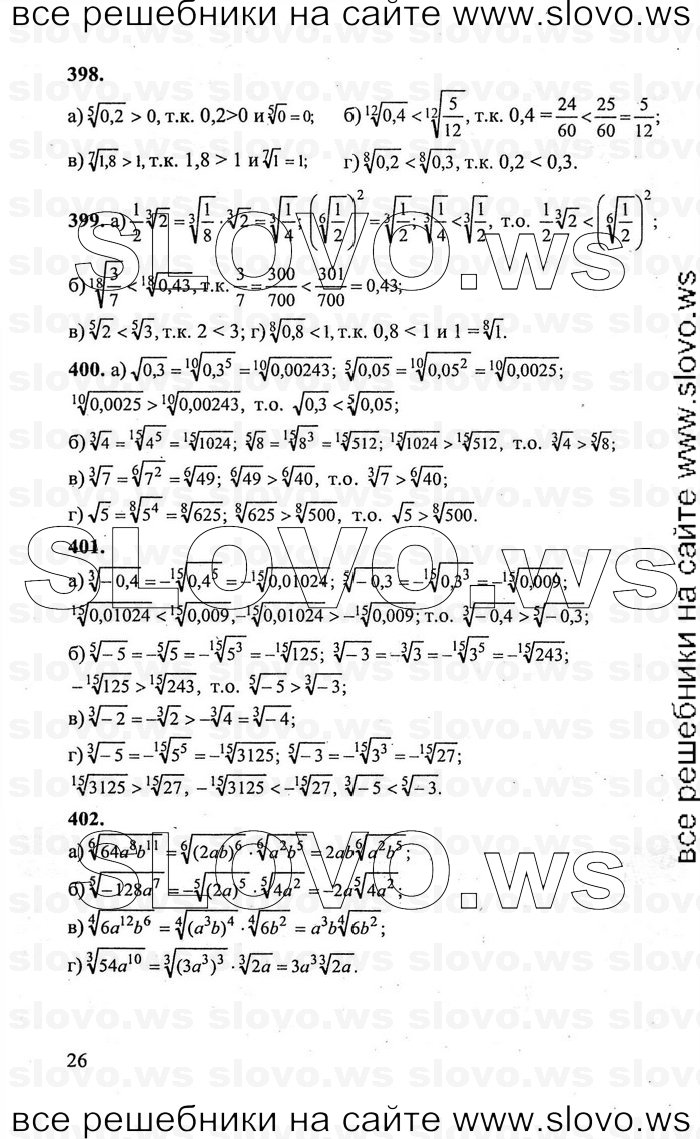 все решебники на сайте www.slovo.ws
398.
а) ⁵√0,2 > 0, т.к. 0,2>0 и ⁵√0 = 0; б) ¹²√0,4 < ¹²√(5/12), т.к. 0,4 = 24/60 < 25/60 = 5/12;
в) ⁷√1,8 > 1, т.к. 1,8 > 1 и ⁷√1 = 1; г) ⁸√0,2 < ⁸√0,3, т.к. 0,2 < 0,3.
399. а) 1/2 ³√2 = ³√(1/8) · ³√2 = ³√(1/4); (⁶√(1/2))² = ³√(1/2); ³√(1/4) < ³√(1/2), т.о. 1/2 ³√2 < (⁶√(1/2))²;
б) ¹⁸√(3/7) < ¹⁸√0,43, т.к. 3/7 = 300/700 < 301/700 = 0,43;
в) ⁵√2 < ⁵√3, т.к. 2 < 3; г) ⁸√0,8 < 1, т.к. 0,8 < 1 и 1 = ⁸√1.
400. а) √0,3 = ¹⁰√(0,3⁵) = ¹⁰√0,00243; ⁵√0,05 = ¹⁰√(0,05²) = ¹⁰√0,0025;
¹⁰√0,0025 > ¹⁰√0,00243, т.о. √0,3 < ⁵√0,05;
б) ³√4 = ¹⁵√(4⁵) = ¹⁵√1024; ⁵√8 = ¹⁵√(8³) = ¹⁵√512; ¹⁵√1024 > ¹⁵√512, т.о. ³√4 > ⁵√8;
в) ³√7 = ⁶√(7²) = ⁶√49; ⁶√49 > ⁶√40, т.о. ³√7 > ⁶√40;
г) √5 = ⁸√(5⁴) = ⁸√625; ⁸√625 > ⁸√500, т.о. √5 > ⁸√500.
401.
а) ³√(−0,4) = −¹⁵√(0,4⁵) = −¹⁵√0,01024; ⁵√(−0,3) = −¹⁵√(0,3³) = −¹⁵√0,009;
¹⁵√0,01024 < ¹⁵√0,009, −¹⁵√0,01024 > −¹⁵√0,009; т.о. ³√(−0,4) > ⁵√(−0,3);
б) ⁵√(−5) = −⁵√5 = −¹⁵√(5³) = −¹⁵√125; ³√(−3) = −³√3 = −¹⁵√(3⁵) = −¹⁵√243;
−¹⁵√125 > ¹⁵√243, т.о. ⁵√(−5) > ³√(−3);
в) ³√(−2) = −³√2 > −³√4 = ³√(−4);
г) ³√(−5) = −¹⁵√(5⁵) = −¹⁵√3125; ⁵√(−3) = −¹⁵√(3³) = −¹⁵√27;
¹⁵√3125 > ¹⁵√27, −¹⁵√3125 < −¹⁵√27, ³√(−5) < ⁵√(−3).
402.
а) ⁶√(64a⁸b¹¹) = ⁶√((2ab)⁶) · ⁶√(a²b⁵) = 2ab ⁶√(a²b⁵);
б) ⁵√(−128a⁷) = −⁵√((2a)⁵) · ⁵√(4a²) = −2a ⁵√(4a²);
в) ⁴√(6a¹²b⁶) = ⁴√((a³b)⁴) · ⁴√(6b²) = a³b ⁴√(6b²);
г) ³√(54a¹⁰) = ³√((3a³)³) · ³√(2a) = 3a³ ³√(2a).
26
все решебники на сайте www.slovo.ws
все решебники на сайте www.slovo.ws
SLOVO.ws
SLOVO.ws
SLOVO.ws